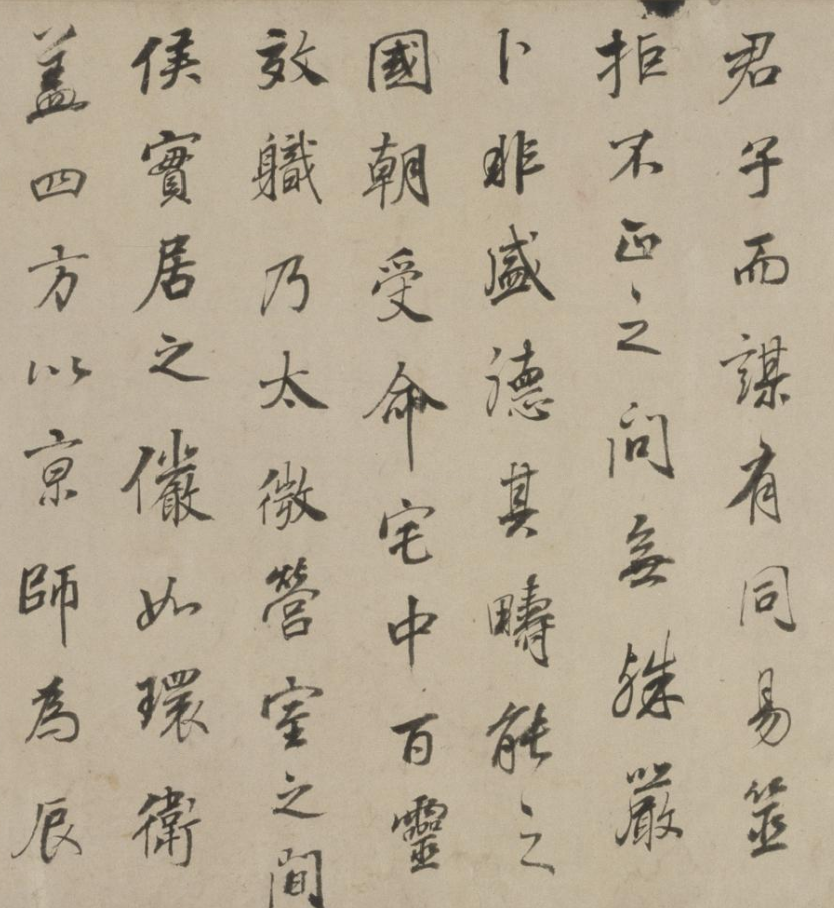 君子而謀有同易筮
拒不正之問無殊嚴
卜非盛德其疇能之
國朝受命宅中百靈
效職乃太微營室之間
侯實居之儼如環衛
盖四方以京師為辰